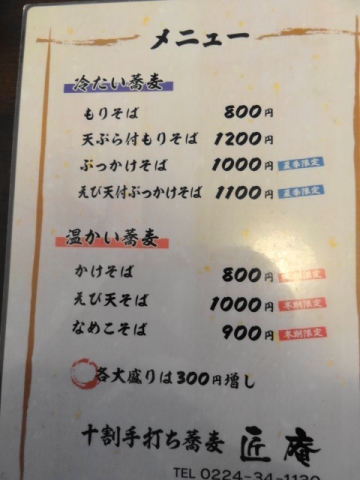 メニュー
冷たい蕎麦
もりそば 800円
天ぷら付もりそば 1200円
ぶっかけそば 1000円 夏季限定
えび天付ぶっかけそば 1100円 夏季限定
温かい蕎麦
かけそば 800円 冬期限定
えび天そば 1000円 冬期限定
なめこそば 900円 冬期限定
各大盛りは300円増し
十割手打ち蕎麦 匠庵
TEL 0224-34-1130